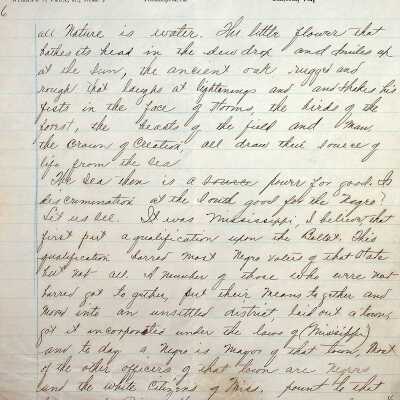 6
all Nature is water. The little flower that
bathes its head in the dew drop and smiles up
at the Sun, the ancient oak rugged and
rough that laughs at lightenings and and shakes his
fists in the face of storms, the birds of the
forest, the beasts of the field and Man,
the Crown of Creation, all draw their source of
life from the sea
The sea then is a source powr for good. Is
discrimination at the South good for the Negro?
Let us see. It was Mississippi, I believe, that
first put a qualification upon the Ballot. This
qualification barred most Negro voters of that State
but not all. A number of those who were not
barred got to gether, put their means to gether and
moved into an unsettled district, laid out a town,
got it incorporated under the laws of (Mississippi)
and to day a Negro is mayor of that town, Most
of the other officers of that town are Negros
and the white Citizens of Miss. point to that